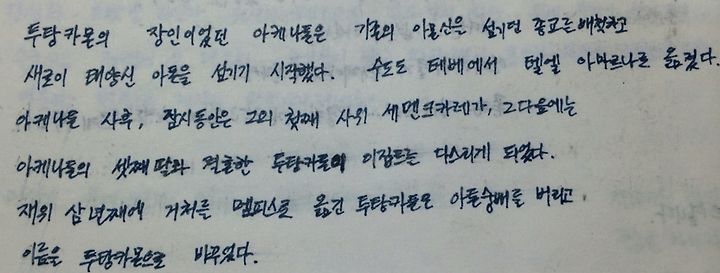 투탕카몬의 장인이었던 아케나톤은 기존의 아몬신을 섬기던 종교를 배척하고
새로이 태양신 아톤을 섬기기 시작했다. 수도도 테베에서 텔엘 아마르나로 옮겼다.
아케나톤 사후, 잠시동안은 그의 첫째 사위 세멘크카레가, 그다음에는
아케나톤의 셋째 딸과 결혼한 투탕카톤이 이집트를 다스리게 되었다.
재위 삼년째에 거처를 멤피스로 옮긴 투탕카톤은 아톤숭배를 버리고
이름을 투탕카몬으로 바꾸었다.